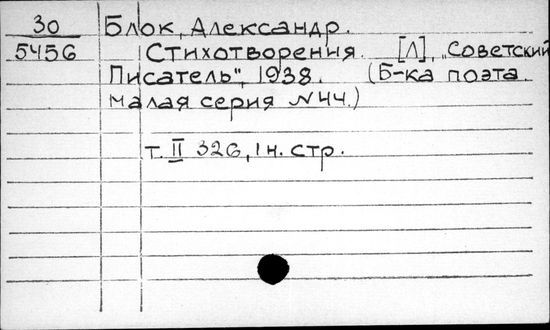 30 Блок, Александр.
5456 Стихотворения. [Л], „Советский
Писатель", 1938. (Б-ка поэта.
малая серия №44.)
т. II 326, 1 н. стр.